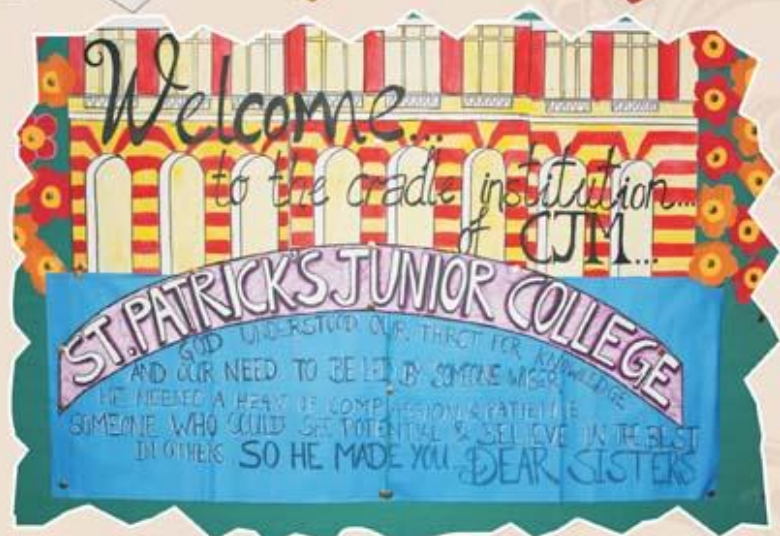 Welcome...
to the cradle institution...
of CJM...
ST. PATRICK'S JUNIOR COLLEGE
GOD UNDERSTOOD OUR THRCT FER KNOWLEDGE
AND OUR NEED TO BE LED BY SOMEONE WISER
HE NEEDED A HEART OF COMPASSION & PATIENCE
SOMEONE WHO COULD SEE POTENTIAL & BELIEVE IN THE BEST
IN OTHERS SO HE MADE YOU DEAR SISTERS